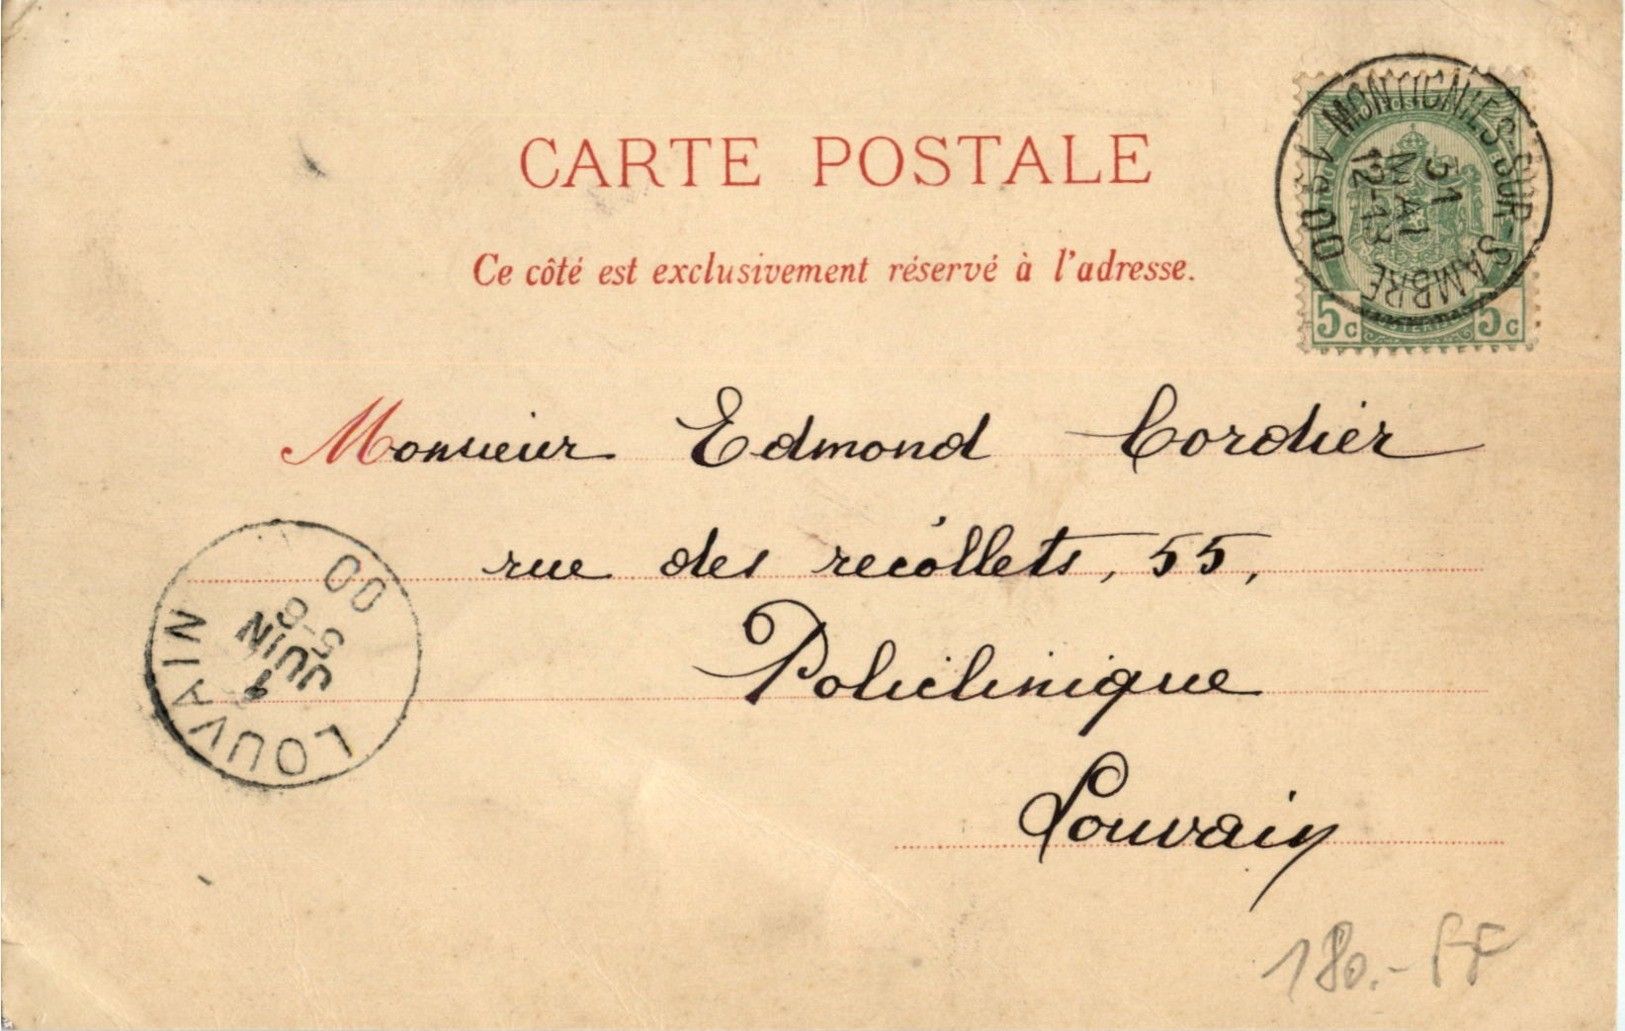 CARTE POSTALE
Ce côté est exclusivement réservé à l'adresse.
MONTIGNIES-SUR-SAMBRE
31
MAI
12-13
1900
5c 5c
Monsieur Edmond Cordier
rue des recollets, 55,
Policlinique
Louvain
LOUVAIN
1
JUIN
5-6
00
180.- FF